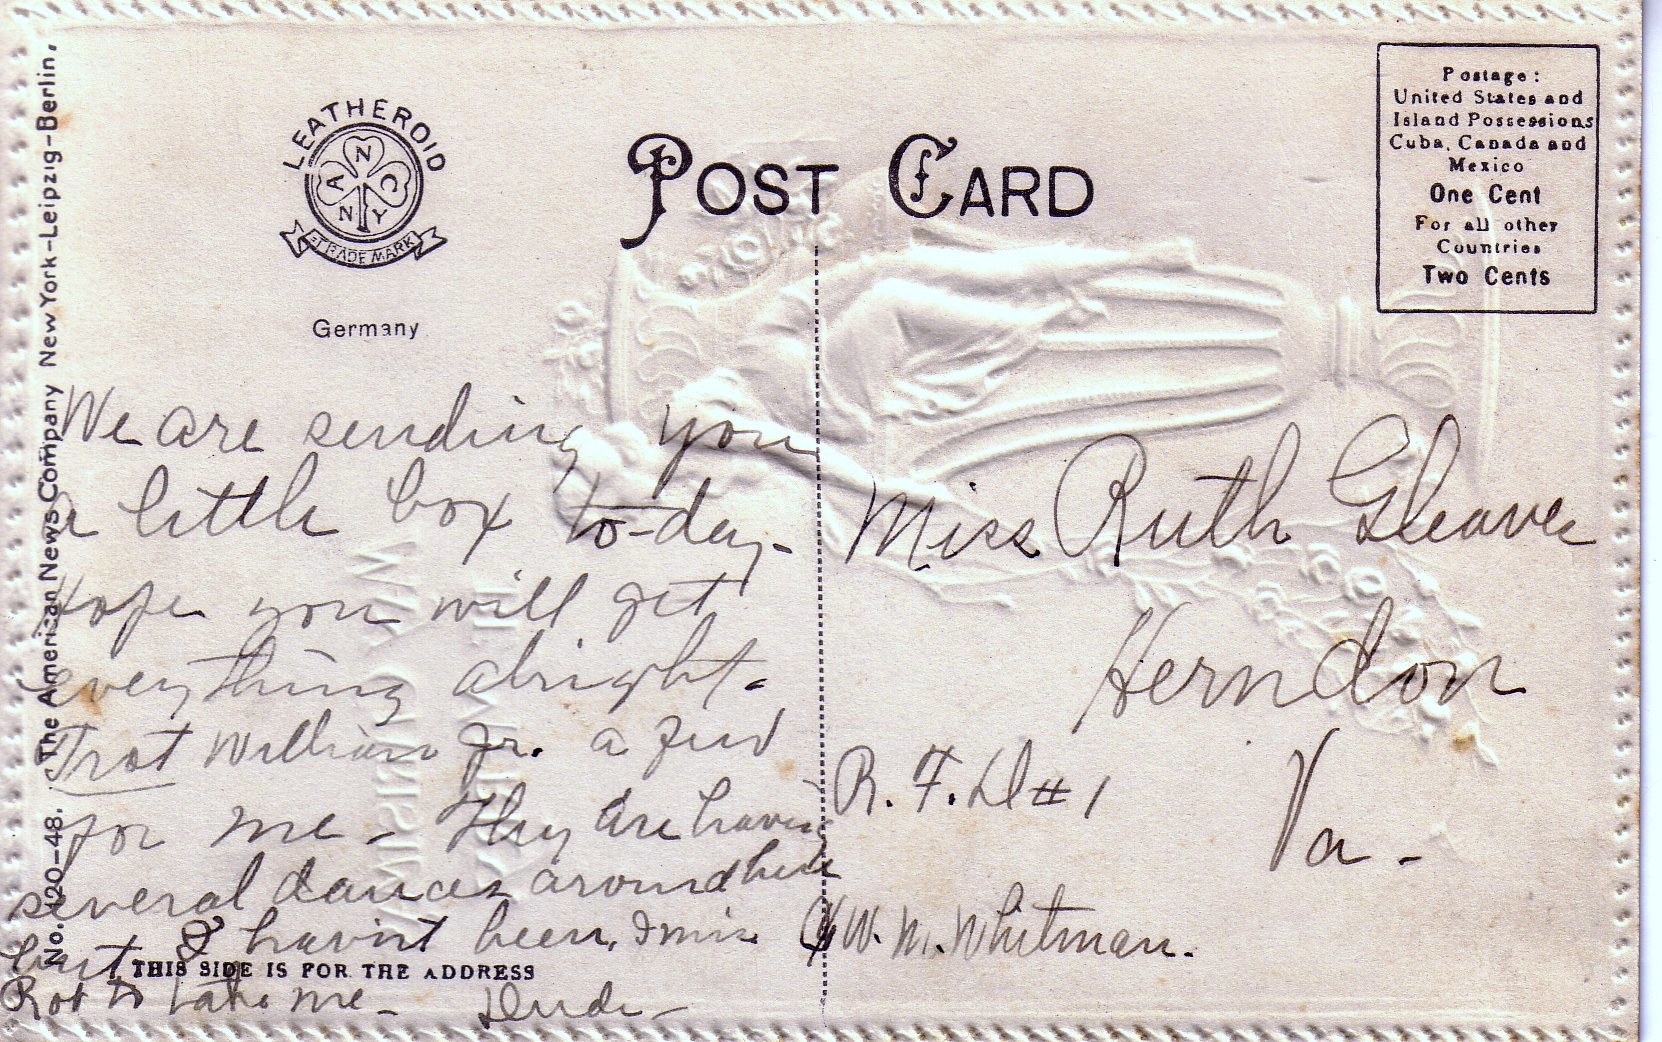 LEATHEROID
A N C N Y
TRADE MARK
Germany
POST CARD
Postage :
United States and
Island Possessions
Cuba, Canada and
Mexico
One Cent
For all other
Countries
Two Cents
No. 120-48. The American News Company New York-Leipzig-Berlin.
We are sending you
a little box to-day-
Hope you will get
everything alright.
Trot William Jr. a few
for me - They are having
several dances around here
but I havn't been, I miss
Rob to take me -
THIS SIDE IS FOR THE ADDRESS
Miss Ruth Gleaves
Herndon
R. F. D # 1
Va -
W. M. Whitman.